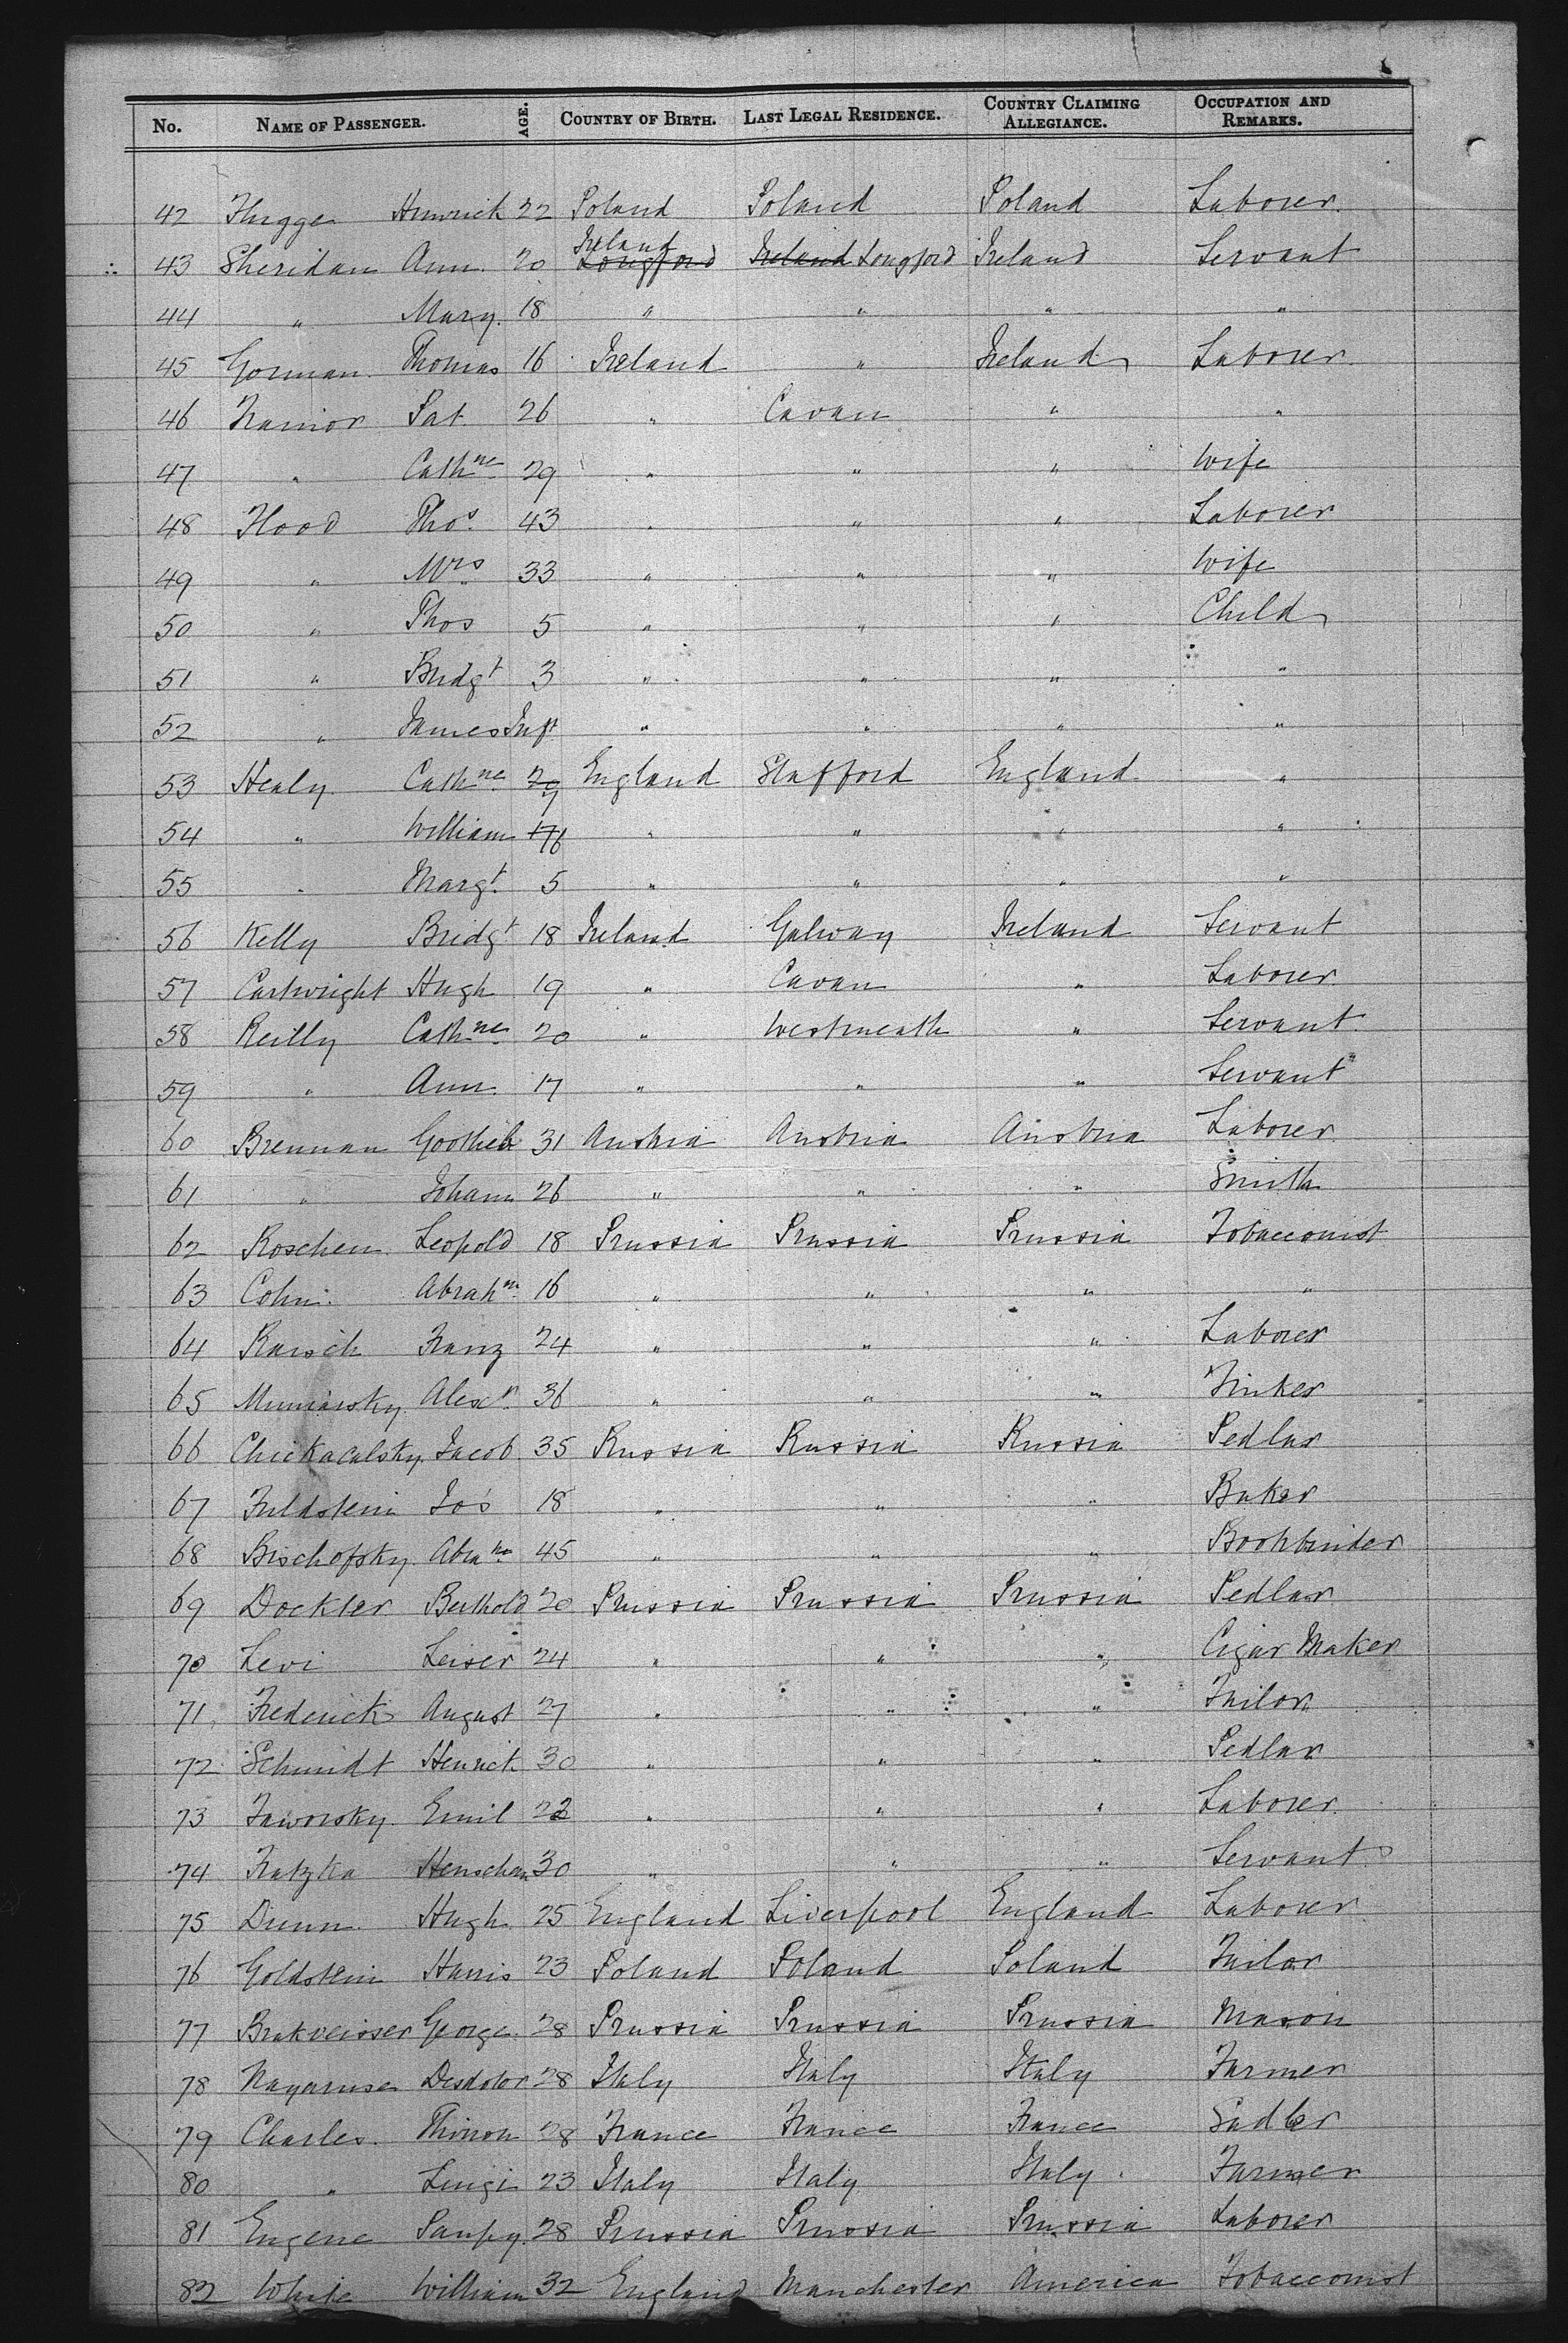 No. NAME OF PASSENGER. AGE. COUNTRY OF BIRTH. LAST LEGAL RESIDENCE. COUNTRY CLAIMING ALLEGIANCE. OCCUPATION AND REMARKS.
42 22 Poland Poland Poland Laborer.
43 Sheridan Ann. 20 Ireland Longford Ireland Longford Ireland Servant
44 " Mary. 18 " " " "
45 Gorman Thomas 16 Ireland " Ireland Laborer
46 Trainor Pat. 26 " Cavan " "
47 " Cathne 29 " " " Wife
48 Flood Thos. 43 " " " Laborer
49 " Mrs 33 " " " Wife
50 " Thos 5 " " " Child
51 " Bridgt 3 " " " "
52 " James Inft " " " "
53 Healy Cathne 7 England Stafford England "
54 " William 6 " " " "
55 " Margt. 5 " " " "
56 Kelly Bridgt 18 Ireland Galway Ireland Servant
57 Cartwright Hugh 19 " Cavan " Laborer
58 Reilly Cathne 20 " Westmeath " Servant
59 " Ann. 17 " " " Servant
60 Brennan Gottlieb 31 Austria Austria Austria Laborer
61 " Johann 26 " " " Smith
62 Roschen Leopold 18 Prussia Prussia Prussia Tobacconist
63 Cohn. Abrahm 16 " " " "
64 Franz 24 " " " Laborer
65 Alexr. 36 " " " Tinker
66 Chickacalsky Jacob 35 Russia Russia Russia Pedlar
67 Feldstein Jos 18 " " " Baker
68 Bischofsky Abrm 45 " " " Bookbinder
69 Dockter Berthold 20 Prussia Prussia Prussia Pedlar
70 Levi Leiser 24 " " " Cigar Maker
71 Frederick August 27 " " " Tailor
72 Schmidt Henrich 30 " " " Pedlar
73 Jaworsky Emil 22 " " " Laborer
74 30 " " " Servant
75 Dunn Hugh 25 England Liverpool England Laborer
76 Goldstein Harris 23 Poland Poland Poland Tailor
77 George. 28 Prussia Prussia Prussia Mason
78 28 Italy Italy Italy Farmer
79 Charles. 28 France France France Sadler
80 " Luigi 23 Italy Italy Italy Farmer
81 Eugene 28 Prussia Prussia Prussia Laborer
82 White William 32 England Manchester America Tobacconist